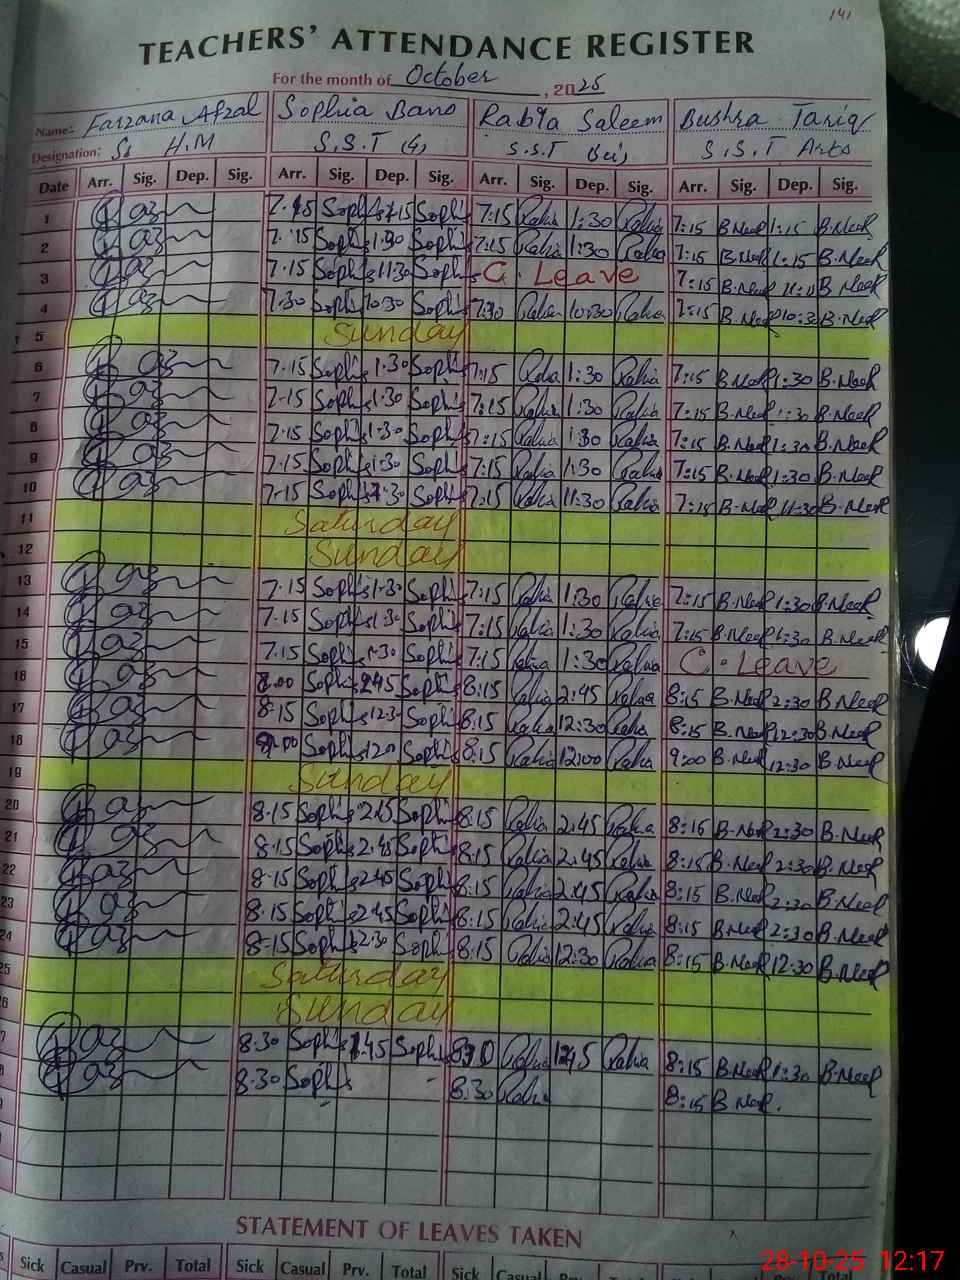 141
TEACHERS' ATTENDANCE REGISTER
For the month of October, 2025
Name: Farzana Afzal Sophia Bano Rabia Saleem Bushra Tariq
Designation: Ss H.M S.S.T (G) S.S.T Sci S.S.T Arts
Date Arr. Sig. Dep. Sig. Arr. Sig. Dep. Sig. Arr. Sig. Dep. Sig. Arr. Sig. Dep. Sig.
1 7:15 Rabia 1:30 Rabia 7:15 B.Neel 1:15 B.Neel
2 7:15 Sophi 1:30 Sophi 7:15 Rabia 1:30 Rabia 7:15 B.Neel 1:15 B.Neel
3 7.15 Sophi 11:30 Sophi C. Leave 7:15 B.Neel B.Neel
4 7:30 Sophi 10:30 Sophi 7:30 Rabia 10:30 Rabia 7:15 B.Neel 10:30 B.Neel
5 Sunday
6 7.15 Sophi 1:30 Sophi 7:15 Rabia 1:30 Rabia 7:15 B.Neel 1:30 B.Neel
7 7-15 Sophi 1:30 Sophi 7:15 Rabia 1:30 Rabia 7:15 B.Neel 1:30 B.Neel
8 7:15 Sophi 1:30 Sophi 7:15 Rabia 1:30 Rabia 7:15 B.Neel 1:30 B.Neel
9 7.15 Sophi 1:30 Sophi 7:15 Rabia 1:30 Rabia 7:15 B.Neel 1:30 B.Neel
10 7-15 Sophi Sophi 7:15 Rabia 11:30 Rabia 7:15 B.Neel 11:30 B.Neel
11 Saturday
12 Sunday
13 7.15 Sophi 1:30 Sophi 7:15 Rabia 1:30 Rabia 7:15 B.Neel 1:30 B.Neel
14 7.15 Sophi 1:30 Sophi 7:15 Rabia 1:30 Rabia 7:15 B.Neel 1:30 B.Neel
15 7.15 Sophi 1:30 Sophi 7:15 Rabia 1:30 Rabia C. Leave
16 8.00 Sophi 2:45 Sophi 8:15 Rabia 2:45 Rabia 8:15 B.Neel 2:30 B.Neel
17 8.15 Sophi 12:30 Sophi 8:15 Rabia 12:30 Rabia 8:15 B.Neel 12:30 B.Neel
18 Sophi Sophi 8:15 Rabia 12:00 Rabia 9:00 B.Neel 12:30 B.Neel
19 Sunday
20 8.15 Sophi 2:45 Sophi 8:15 Rabia 2:45 Rabia 8:15 B.Neel 2:30 B.Neel
21 8.15 Sophi 2:45 Sophi 8:15 Rabia 2:45 Rabia 8:15 B.Neel 2:30 B.Neel
22 8.15 Sophi 2:45 Sophi 8:15 Rabia 2:45 Rabia 8:15 B.Neel 2:30 B.Neel
23 8.15 Sophi 2:45 Sophi 8:15 Rabia 2:45 Rabia 8:15 B.Neel 2:30 B.Neel
24 8-15 Sophi 2:30 Sophi 8:15 Rabia 12:30 Rabia 8:15 B.Neel 12:30 B.Neel
25 Saturday
26 Sunday
8.30 Sophi 1.45 Sophi 8:30 Rabia 1:45 Rabia 8:15 B.Neel 1:30 B.Neel
8.30 Sophi 8:30 Rabia 8:15 B.Neel.
STATEMENT OF LEAVES TAKEN
Sick Casual Prv. Total Sick Casual Prv. Total Sick Casual Prv. Total Sick Casual Prv. Total
28-10-25 12:17